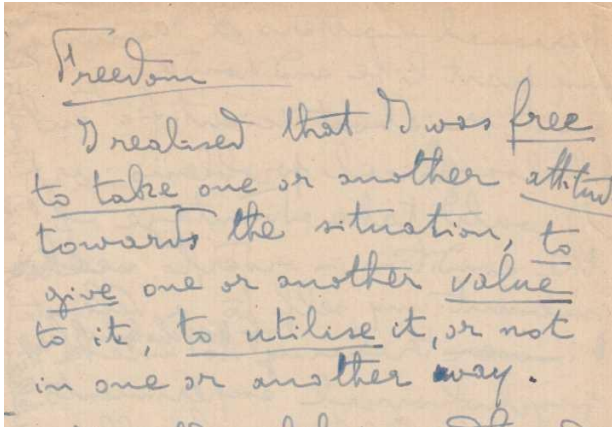 Freedom
I realised that I was free
to take one or another attitud
towards the situation, to
give one or another value
to it, to utilise it, or not
in one or another way.